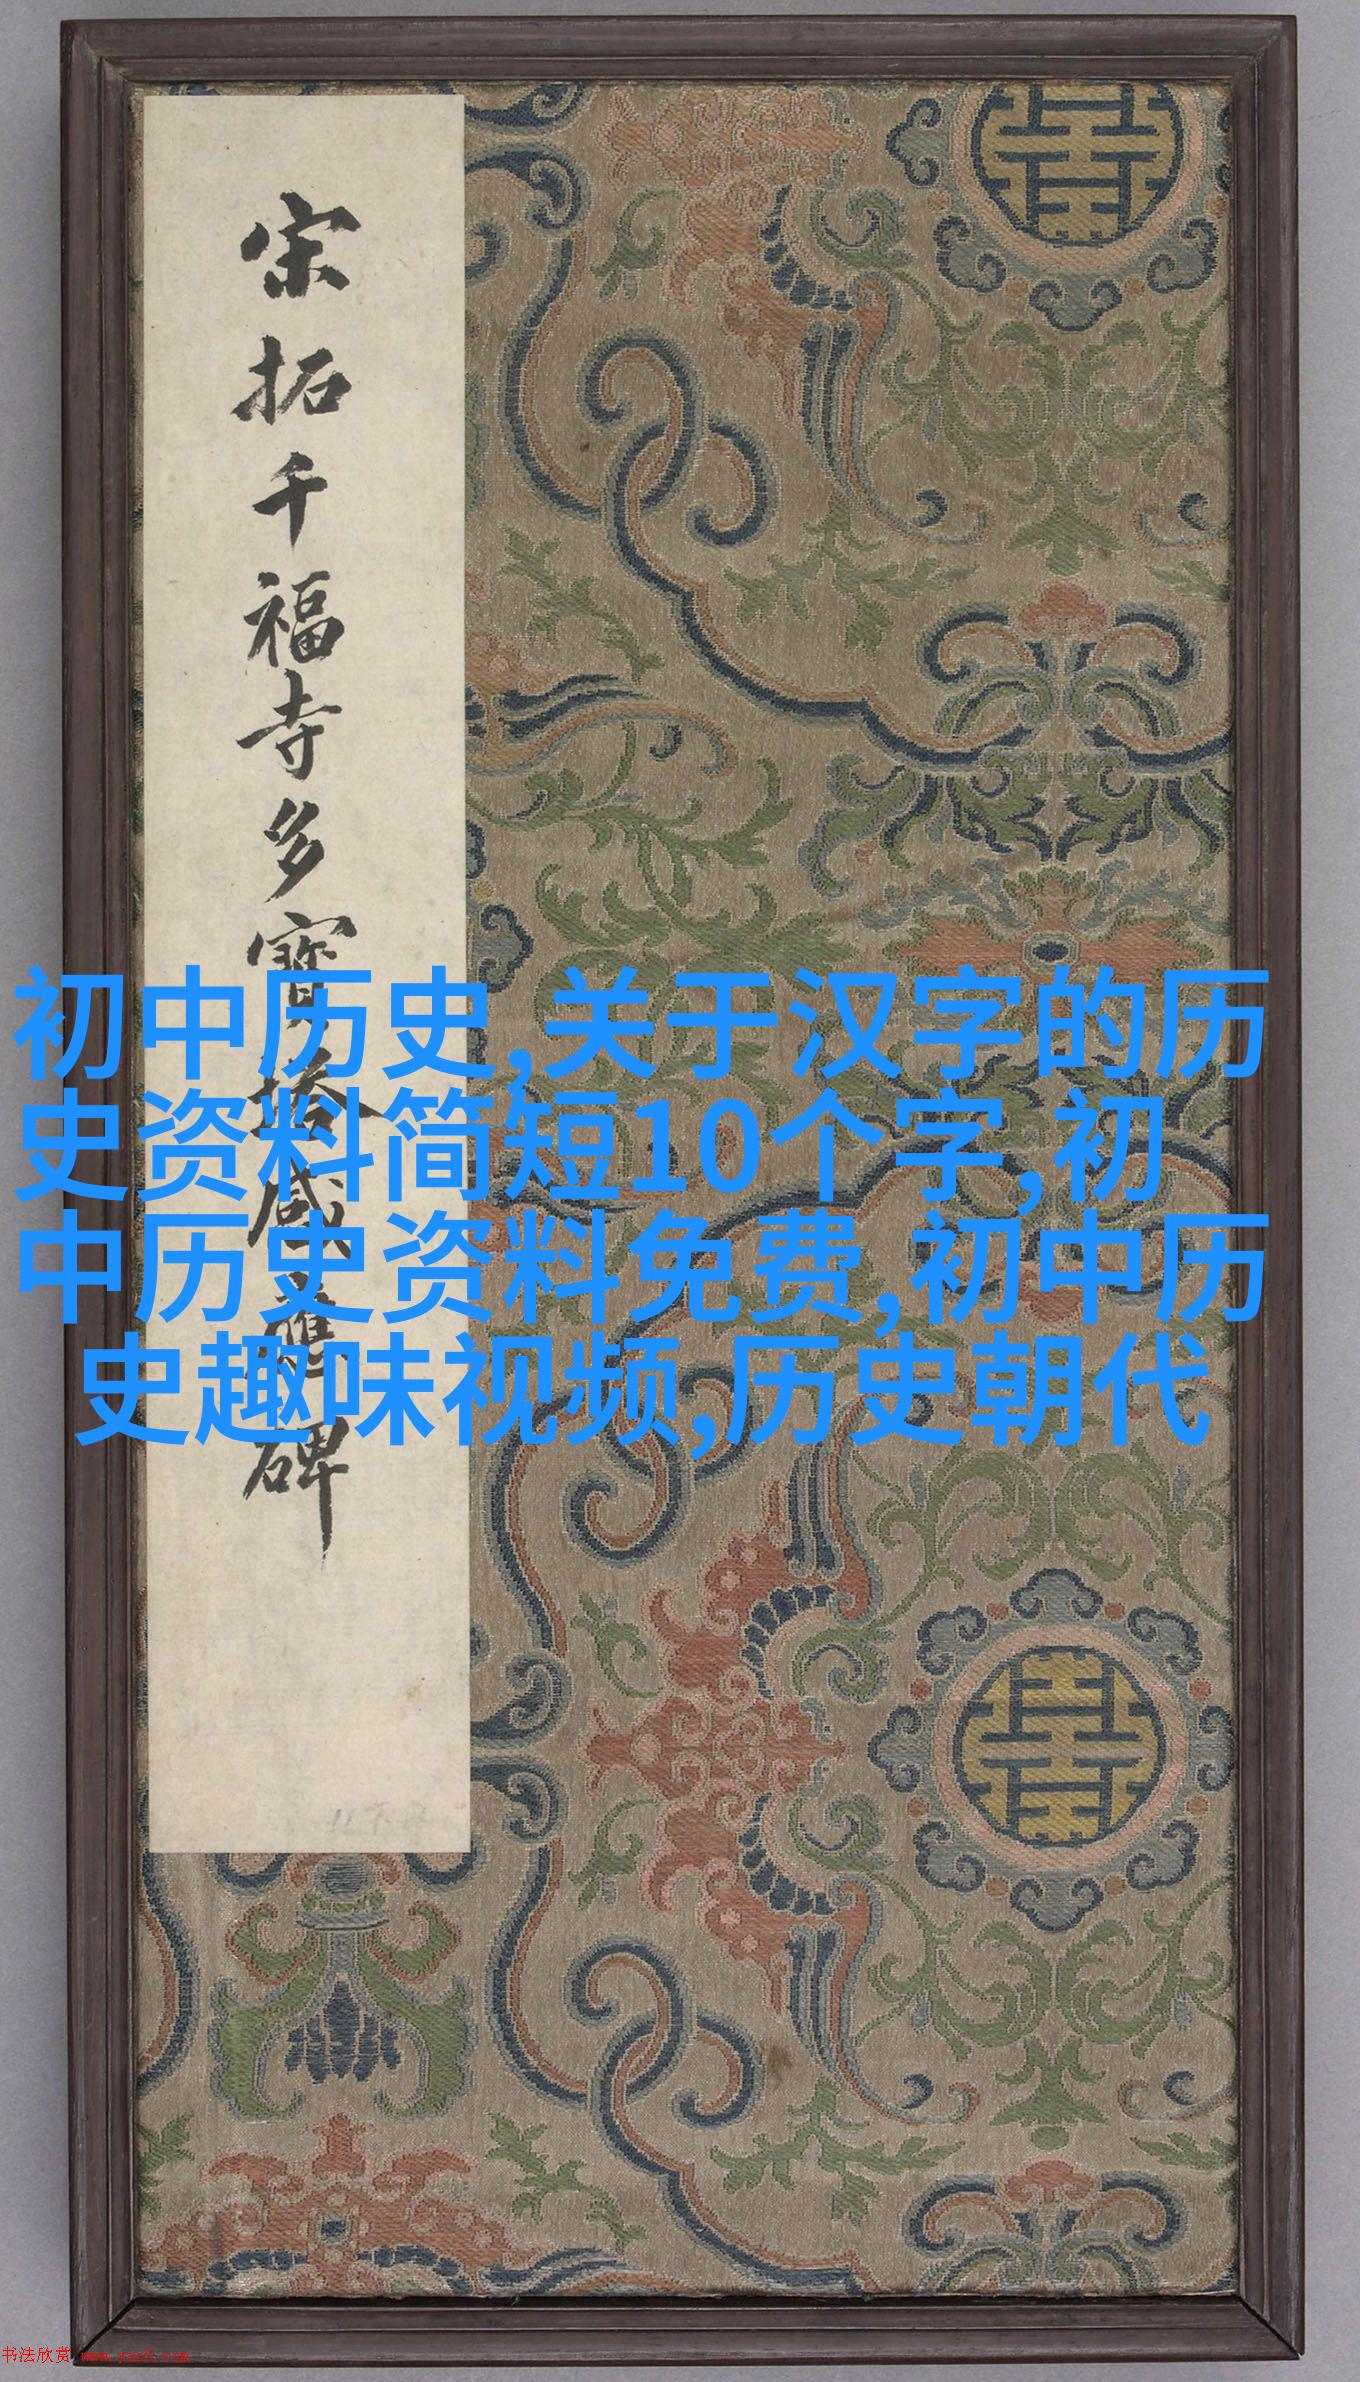 宋拓千福寺多寶塔感應碑
初中历史,关于汉字的历
史资料简短10个字,初
中历史资料免费,初中历
史趣味视频,历史朝代
书法欣赏 www.yac8.com